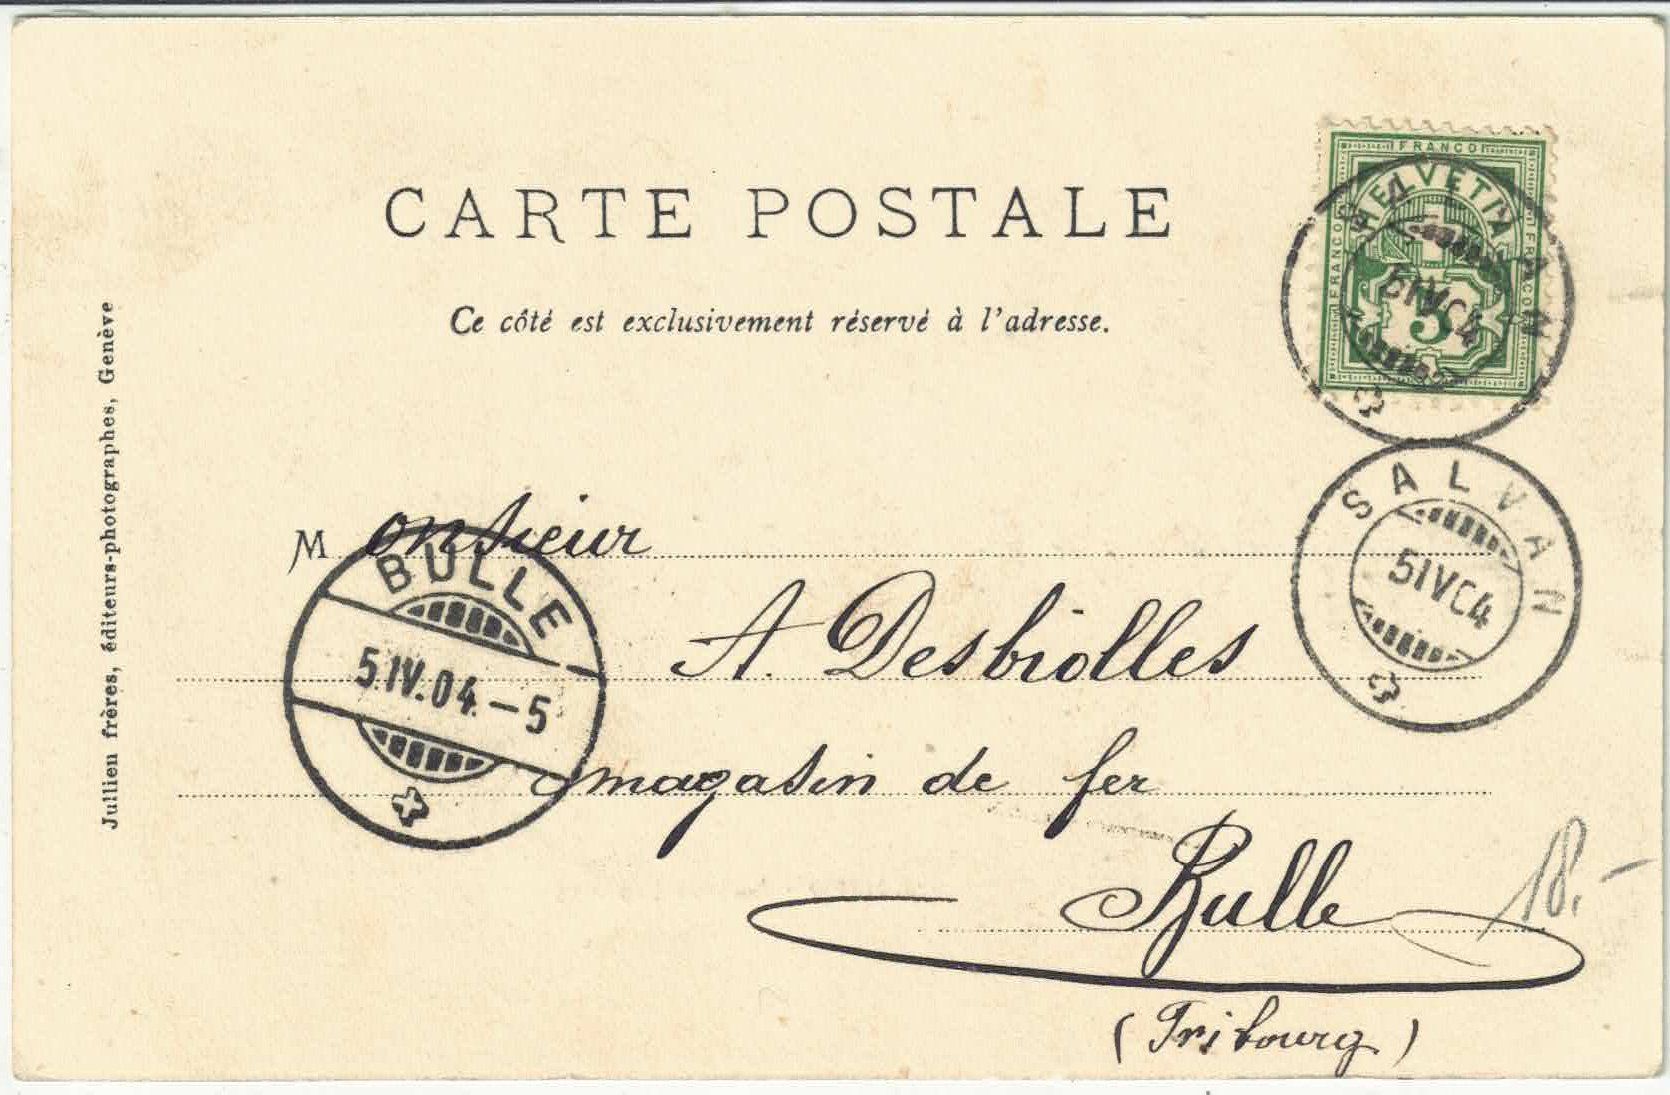 CARTE POSTALE
Ce côté est exclusivement réservé à l'adresse.
FRANCO
FRANCO
FRANCO
HELVETIA
5
SALVAN
5 IV 04
SALVAN
5 IV 04
Monsieur
A. Desbiolles
magasin de fer
Bulle
(Fribourg)
BULLE
5.IV.04.–5
18.–
Jullien frères, éditeurs-photographes, Genève